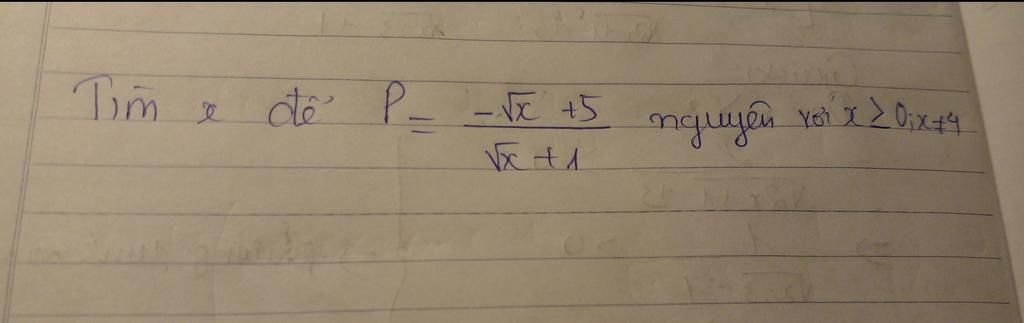 Tìm x để P = \frac{-\sqrt{x} + 5}{\sqrt{x} + 1} nguyên với x ≥ 0; x ≠ 4